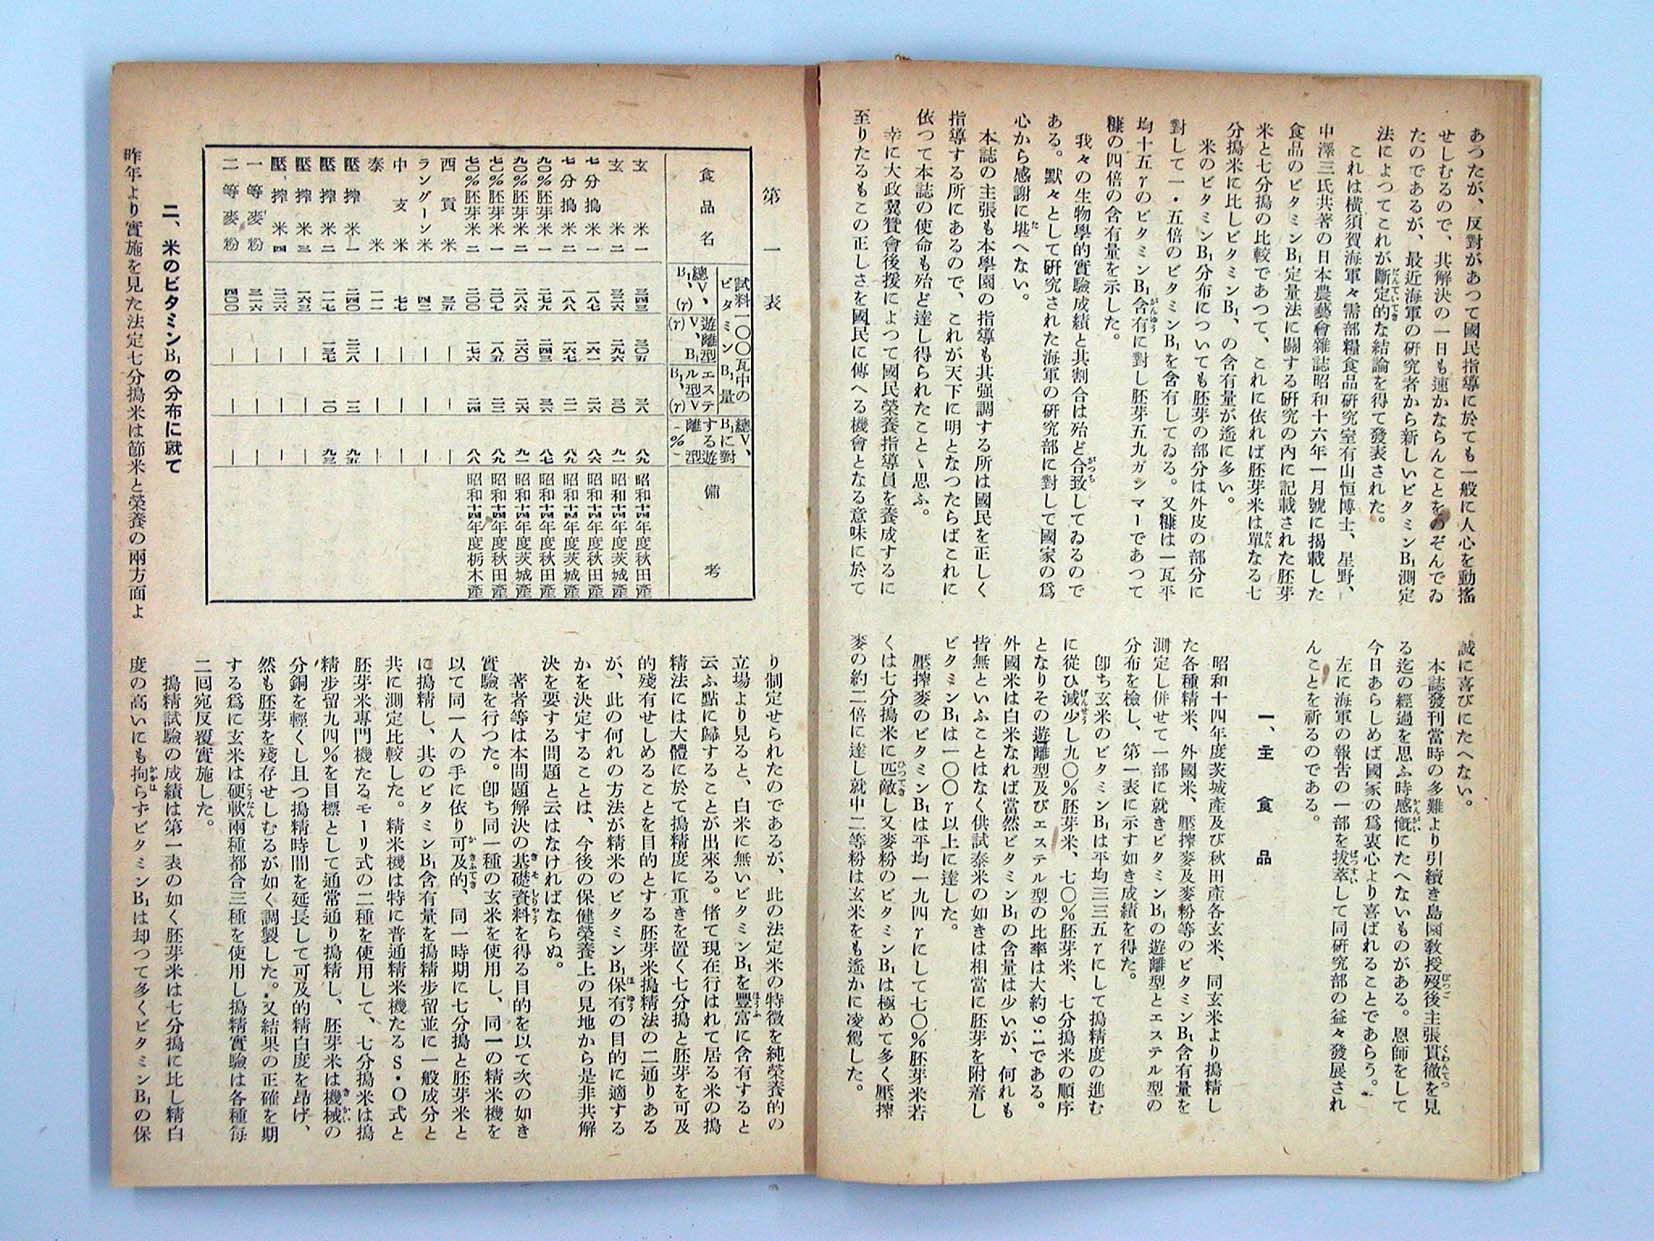 あつたが、反對があつて國民指導に於ても一般に人心を動搖
せしむるので、其解決の一日も速かならんことをのぞんでゐ
たのであるが、最近海軍の研究者から新しいビタミンB₁測定
法によつてこれが斷定的な結論を得て發表された。
これは橫須賀海軍々需部糧食品硏究室有山恒博士、星野、
中澤三氏共著の日本農藝會雜誌昭和十六年一月號に揭載した
食品のビタミンB₁定量法に關する硏究の内に記載された胚芽
米と七分搗の比較であつて、これに依れば胚芽米は單なる七
分搗米に比しビタミンB₁、の含有量が遙に多い。
米のビタミンB₁分布についても胚芽の部分は外皮の部分に
對して一・五倍のビタミンB₁を含有してゐる。又糠は一瓦平
均十五γのビタミンB₁含有に對し胚芽五九ガンマーであつて
糠の四倍の含有量を示した。
我々の生物學的實驗成績と其割合は殆ど合致してゐるので
ある。默々として硏究された海軍の硏究部に對して國家の爲
心から感謝に堪へない。
本誌の主張も本學園の指導も其强調する所は國民を正しく
指導する所にあるので、これが天下に明となつたらばこれに
依つて本誌の使命も殆ど達し得られたこと丶思ふ。
幸に大政翼贊會後援によつて國民榮養指導員を養成するに
至りたるもこの正しさを國民に傳へる機會となる意味に於て
誠に喜びにたへない。
本誌發刊當時の多難より引續き島園敎授歿後主張貫徹を見
る迄の經過を思ふ時感慨にたへないものがある。恩師をして
今日あらしめば國家の爲衷心より喜ばれることであらう。
左に海軍の報吿の一部を拔萃して同硏究部の益々發展され
んことを祈るのである。
一、主食品
昭和十四年度茨城產及び秋田產各玄米、同玄米より搗精し
た各種精米、外國米、壓搾麥及麥粉等のビタミンB₁含有量を
測定し併せて一部に就きビタミンB₁の遊離型とエステル型の
分布を檢し、第一表に示す如き成績を得た。
卽ち玄米のビタミンB₁は平均三三五γにして搗精度の進む
に從ひ減少し九〇%胚芽米、七〇%胚芽米、七分搗米の順序
となりその遊離型及びエステル型の比率は大約9:1である。
外國米は白米なれば當然ビタミンB₁の含量は少いが、何れも
皆無といふことはなく供試泰米の如きは相當に胚芽を附着し
ビタミンB₁は一〇〇γ以上に達した。
壓搾麥のビタミンB₁は平均一九四γにして七〇%胚芽米若
くは七分搗米に匹敵し又麥粉のビタミンB₁は極めて多く壓搾
麥の約二倍に達し就中二等粉は玄米をも遙かに凌駕した。
第一表
食品名 試料一〇〇瓦中のビタミンB₁量 總V、B₁(γ) 遊離型V、B₁(γ) エステル型V、B₁(γ) 總V、B₁に對する遊離型(%) 備考
玄米一 三四三 三〇五 三八 八九 昭和十四年度秋田產
玄米二 三二六 二九六 三〇 九一 昭和十四年度茨城產
七分搗米一 一八七 一六一 二六 八六 昭和十四年度秋田產
七分搗米二 一八八 一六七 二一 八九 昭和十四年度茨城產
九〇%胚芽米一 二七九 二四三 三六 八七 昭和十四年度秋田產
九〇%胚芽米二 二八六 二六〇 二六 九一 昭和十四年度茨城產
七〇%胚芽米一 二〇七 一八五 二三 八九 昭和十四年度秋田產
七〇%胚芽米二 二〇〇 一七六 二四 八八 昭和十四年度栃木產
西貢米 三五 — —
ラングーン米 四二 — —
中支米 七七 — —
泰米 一一一 — —
壓搾米一 二四〇 二二八 一二 九五
壓搾米二 一四七 一三七 一〇 九三
壓搾米三 一六三 — — —
壓搾米四 二三六 — — —
一等麥粉 三一六 — — —
二等麥粉 四〇〇 — — —
二、米のビタミンB₁の分布に就て
昨年より實施を見た法定七分搗米は節米と榮養の兩方面よ
り制定せられたのであるが、此の法定米の特徵を純榮養的の
立場より見ると、白米に無いビタミンB₁を豐富に含有すると
云ふ點に歸することが出來る。偖て現在行はれて居る米の搗
精法には大體に於て搗精度に重きを置く七分搗と胚芽を可及
的殘有せしめることを目的とする胚芽米搗精法の二通りある
が、此の何れの方法が精米のビタミンB₁保有の目的に適する
かを決定することは、今後の保健榮養上の見地から是非共解
決を要する問題と云はなければならぬ。
著者等は本問題解決の基礎資料を得る目的を以て次の如き
實驗を行つた。卽ち同一種の玄米を使用し、同一の精米機を
以て同一人の手に依り可及的、同一時期に七分搗と胚芽米と
に搗精し、共のビタミンB₁含有量を搗精步留並に一般成分と
共に測定比較した。精米機は特に普通精米機たるS・O式と
胚芽米專門機たるモーリ式の二種を使用して、七分搗米は搗
精步留九四%を目標として通常通り搗精し、胚芽米は機械の
分銅を輕くし且つ搗精時間を延長して可及的精白度を昂げ、
然も胚芽を殘存せしむるが如く調製した。又結果の正確を期
する爲に玄米は硬軟兩種都合三種を使用し搗精實驗は各種每
二回宛反覆實施した。
搗精試驗の成績は第一表の如く胚芽米は七分搗に比し精白
度の高いにも拘らずビタミンB₁は却つて多くビタミンB₁の保